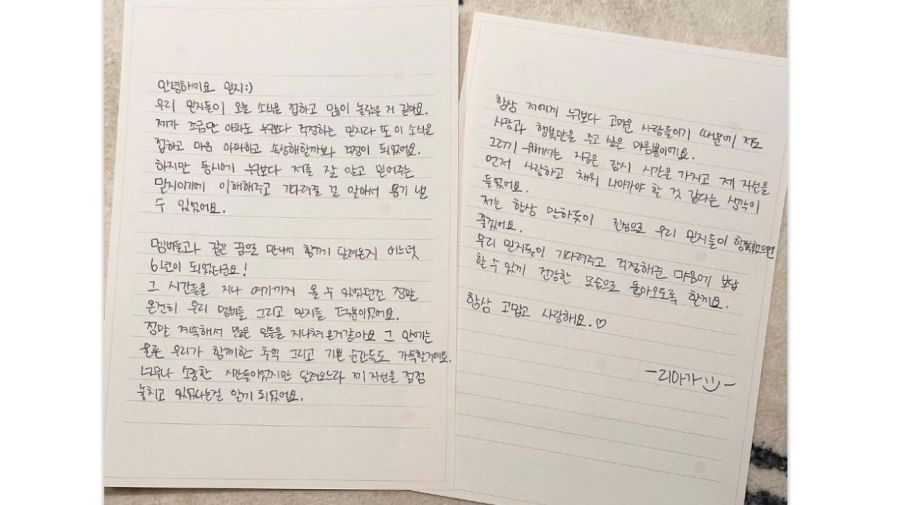 안녕하세요 믿지:)
우리 믿지들이 오늘 소식을 접하고 많이 놀랐을 거 같아요.
제가 조금만 아파도 누구보다 걱정하는 믿지라 또 이 소식을
접하고 마음 아파하고 속상해할까봐 걱정이 되었어요.
하지만 동시에 누구보다 저를 잘 알고 믿어주는
믿지이기에 이해해주고 기다려줄 걸 알아서 용기 낼
수 있었어요.
멤버들과 같은 꿈으로 만나서 함께 달려온지 어느덧
6년이 되었더라구요!
그 시간들을 지나 여기까지 올 수 있었던건 정말
온전히 우리 멤버들 그리고 믿지들 덕분이었어요.
정말 계속해서 많은 일들을 지나쳐온거같아요 그 안에는
물론 우리가 함께한 추억 그리고 기쁜 순간들도 가득할거에요.
너무나 소중한 시간들이었지만 달려오느라 제 자신을 점점
놓치고 있었다는걸 알게 되었어요.
항상 저에게 누구보다 고마운 사람들이기 때문에 저도
사랑과 행복만을 주고 싶은 마음뿐이에요.
그러기 위해서는 지금은 잠시 시간을 가지고 제 자신을
먼저 사랑하고 채워 나아가야 할 것 같다는 생각이
들었어요.
저는 항상 말하듯이 진심으로 우리 믿지들이 행복했으면
좋겠어요.
우리 믿지들이 기다려주고 걱정하는 마음에 보답
할 수 있게 건강한 모습으로 돌아오도록 할게요.
항상 고맙고 사랑해요.♡
-리아가-